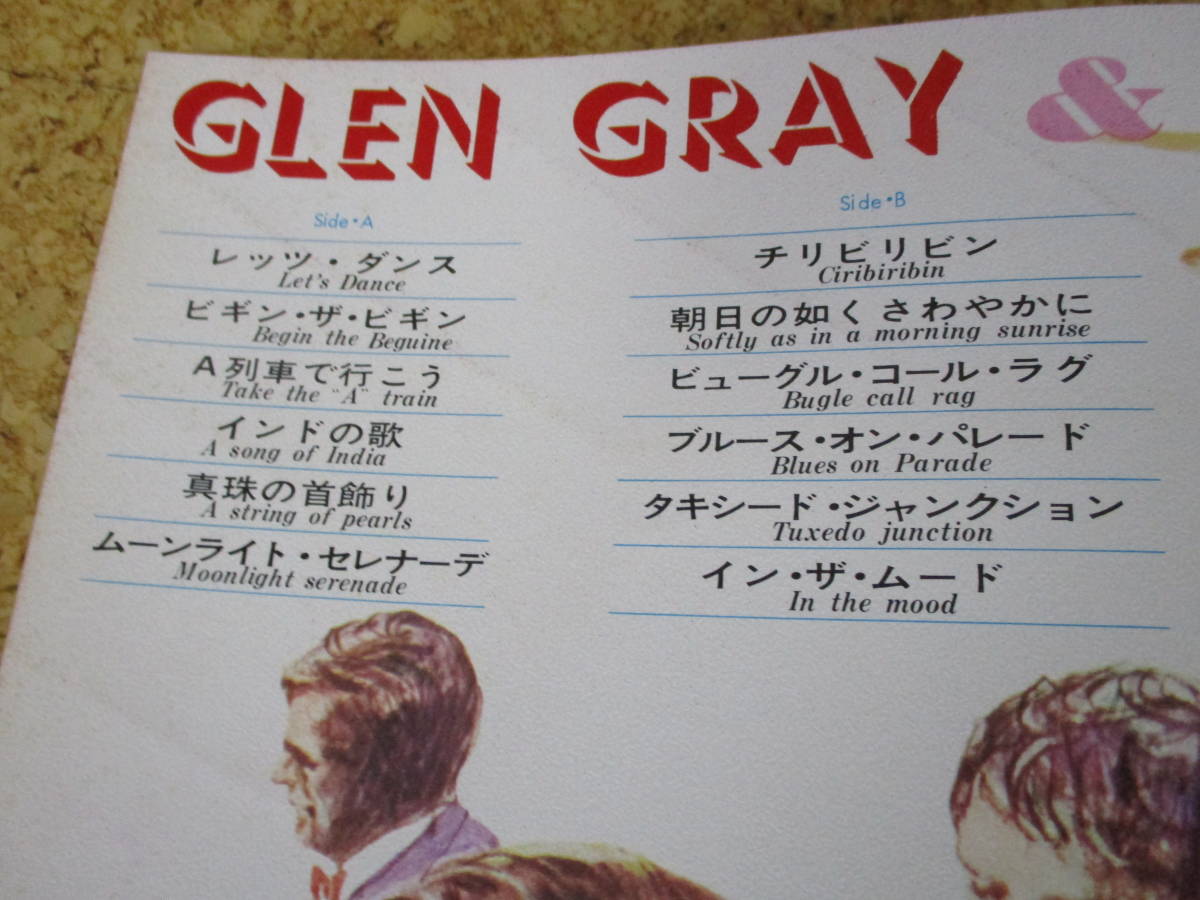 GLEN GRAY &
Side・A
レッツ・ダンス
Let's Dance
ビギン・ザ・ビギン
Begin the Beguine
A列車で行こう
Take the "A" train
インドの歌
A song of India
真珠の首飾り
A string of pearls
ムーンライト・セレナーデ
Moonlight serenade
Side・B
チリビリビン
Ciribiribin
朝日の如くさわやかに
Softly as in a morning sunrise
ビューグル・コール・ラグ
Bugle call rag
ブルース・オン・パレード
Blues on Parade
タキシード・ジャンクション
Tuxedo junction
イン・ザ・ムード
In the mood